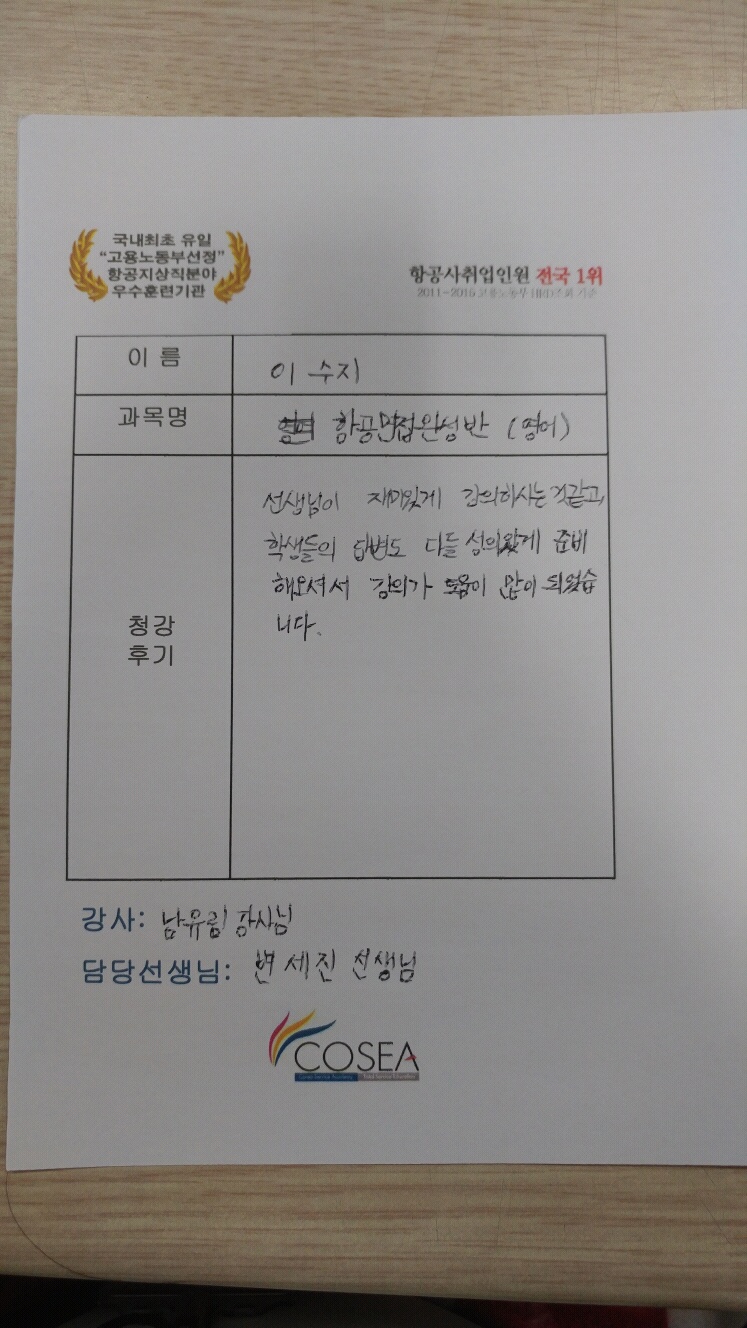 국내최초 유일
“고용노동부선정”
항공지상직분야
우수훈련기관
항공사취업인원 전국 1위
2011-2016 고용노동부 HRD조회 기준
이 름
이 수지
과목명
항공면접완성반 (영어)
선생님이 재미있게 강의하시는것같고,
학생들의 답변도 다들 성의있게 준비
해오셔서 강의가 도움이 많이 되었습
니다.
청강
후기
강사: 남유림 강사님
담당선생님: 변세진 선생님
COSEA